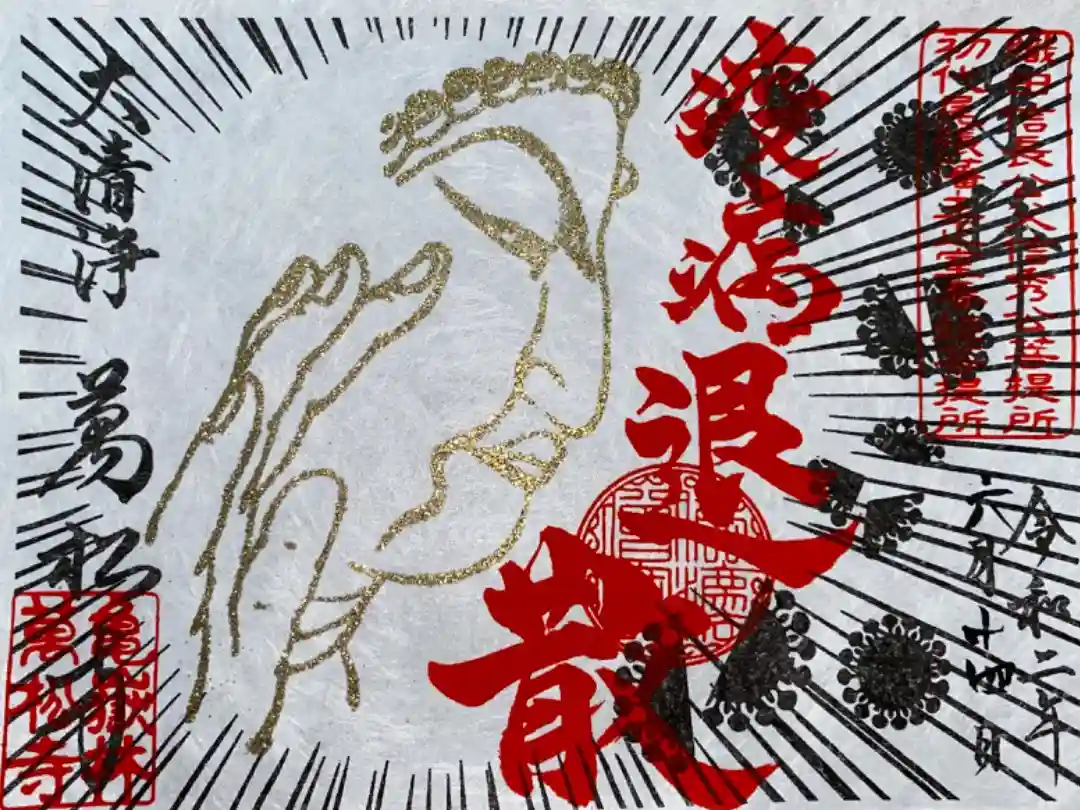 織田信長公父信秀公菩提所
初代尾張藩主正室春姫菩提所
令和二年
六月十四日
疫病退散
大清浄 萬松寺
亀嶽林
萬松寺